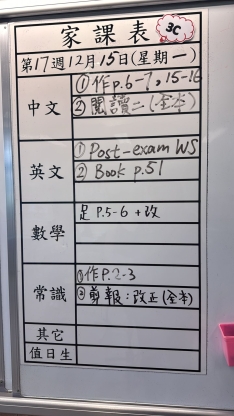 家課表 3C
第17週12月15日(星期一)
中文 ①作P.6-7,15-16
②閱讀二(全本)
英文 ① Post-exam WS
② Book p.51
數學 足 P.5-6 + 改
常識 ①作P.2-3
②剪報:改正(全本)
其它
值日生